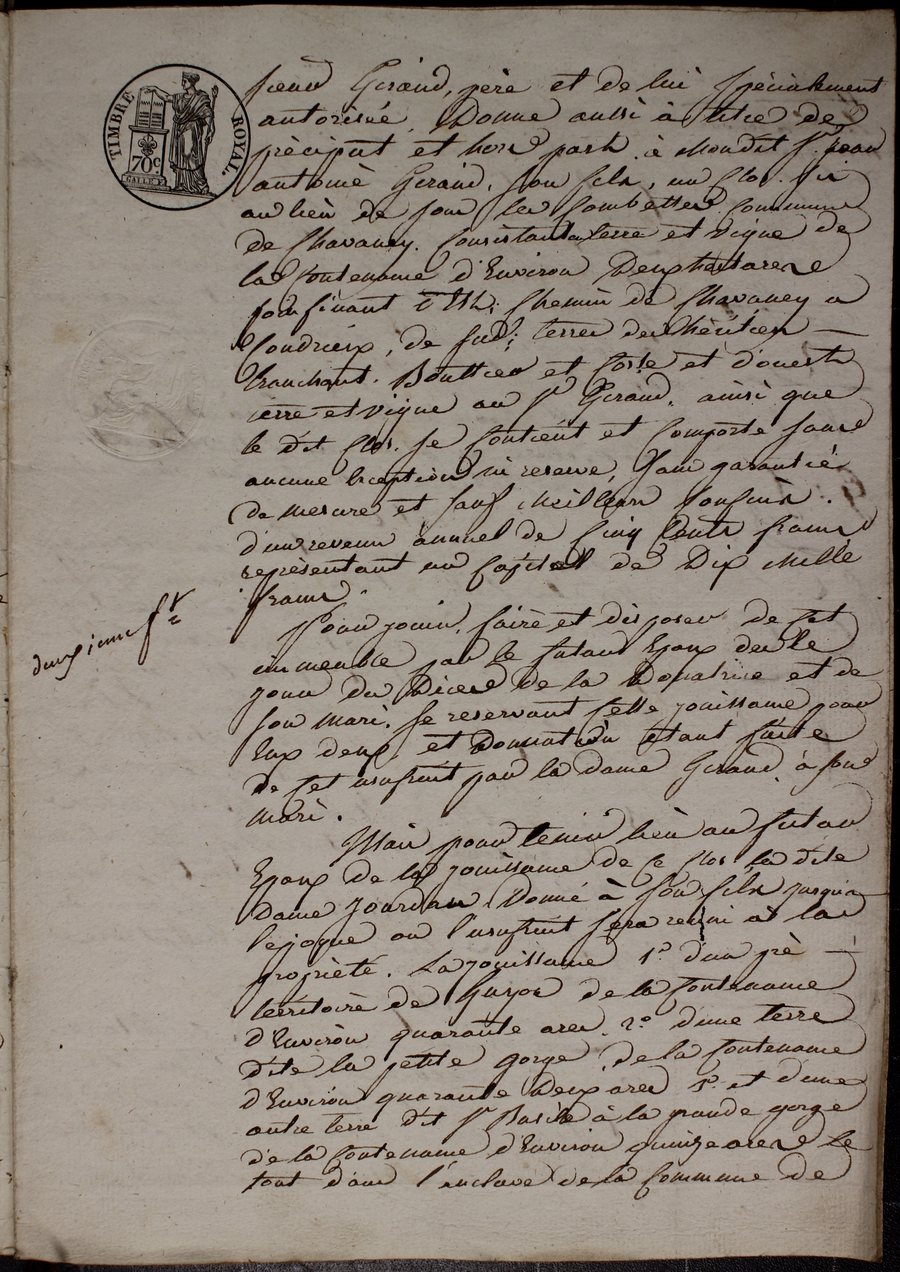 TIMBRE ROYAL.
70c
Jean Giraud, père et de lui spécialement
autorisée, Donne aussi à titre de
préciput et hors part à mondit Sr. Jean
antoine Giraud, son fils, un clos sis
au lieu de sous les Combettes commune
de Chavaney. Consistant en terre et vigne de
la Contenance d'Environ Deux hectares
Confinant d'Est, Chemin de Chavaney a
Condrieux, de sud, terres des héritiers
tranchant. Bouttier et Coste et d'ouest
terre et vigne au Sr Giraud. ainsi que
le dit Clos se Contient et Comporte sans
aucune Exception ni reserve, sans garantie
de mesure et sauf meilleur Confins.
d'un revenu annuel de Cinq Cents francs
représentant un Capital de Dix mille
francs.
deuxieme ft
Pour jouir, faire et disposer de cet
immeuble par le futur Epoux des le
jour du Décès de la Donatrice et de
son mari. se reservant Cette jouissance pour
Eux deux, et Donation Etant faite
de cet usufruit par la dame Giraud à son
mari.
Mais pour tenir lieu au futur
Epoux de la jouissance de ce Clos, la dite
Dame Jourdan Donne à son fils jusqu'a
l'époque ou l'usufruit sera reuni à la
propriété. La jouissance 1o. d'un pré
territoire de de la Contenance
d'Environ quarante ares. 2o d'une terre
dite la petite gorge, de la Contenance
d'Environ quarante Deux ares et d'une
autre terre dit à la grande gorge
de la Contenance d'Environ quinze ares le
tout dans l'enclave de la Commune de